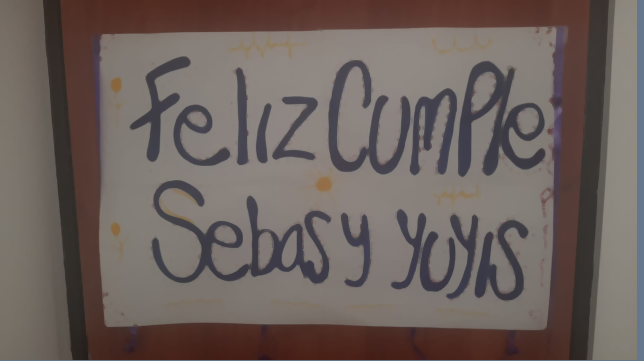 Feliz Cumple
Sebas y yuyis